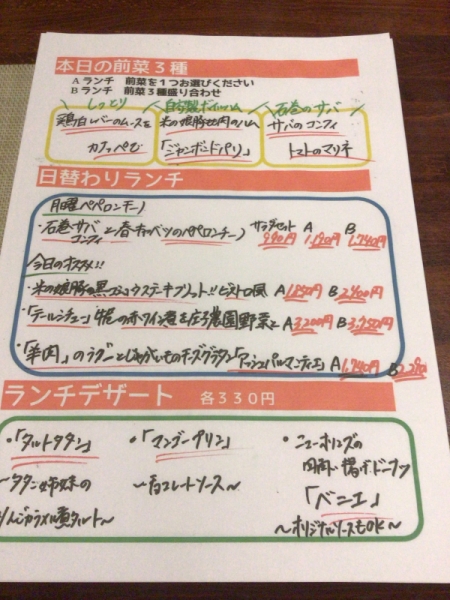 本日の前菜３種
Aランチ 前菜を１つお選びください
Bランチ 前菜３種盛り合わせ
しっとり
自家製ボイルハム
石巻のサバ
鶏白レバーのムースを
カフェぺむ
米の娘豚もも肉のハム
「ジャンボンドパリ」
サバのコンフィ
トマトのマリネ
日替わりランチ
月曜ペペロンチーノ
・石巻サバコンフィと春キャベツのペペロンチーノ サラダセット 990円 A 1,190円 B 1,740円
今日のオススメ!!
・米の娘豚の黒コショウステーキフリット!!ビストロ風 A 1,850円 B 2,400円
・「テールシチュー」牛尾の赤ワイン煮を庄司農園野菜と A 3,200円 B 3,750円
・「羊肉」のラグーとじゃがいものチーズグラタン「アッシュパルマンティエ」 A 1,740円 B
ランチデザート 各３３０円
・「タルトタタン」
〜タタン姉妹の
りんごカラメル煮タルト〜
・「マンゴープリン」
〜チョコレートソース〜
・ニューオリンズの
四角い揚げドーナツ
「ベニエ」
〜オリジナルソースもOK〜